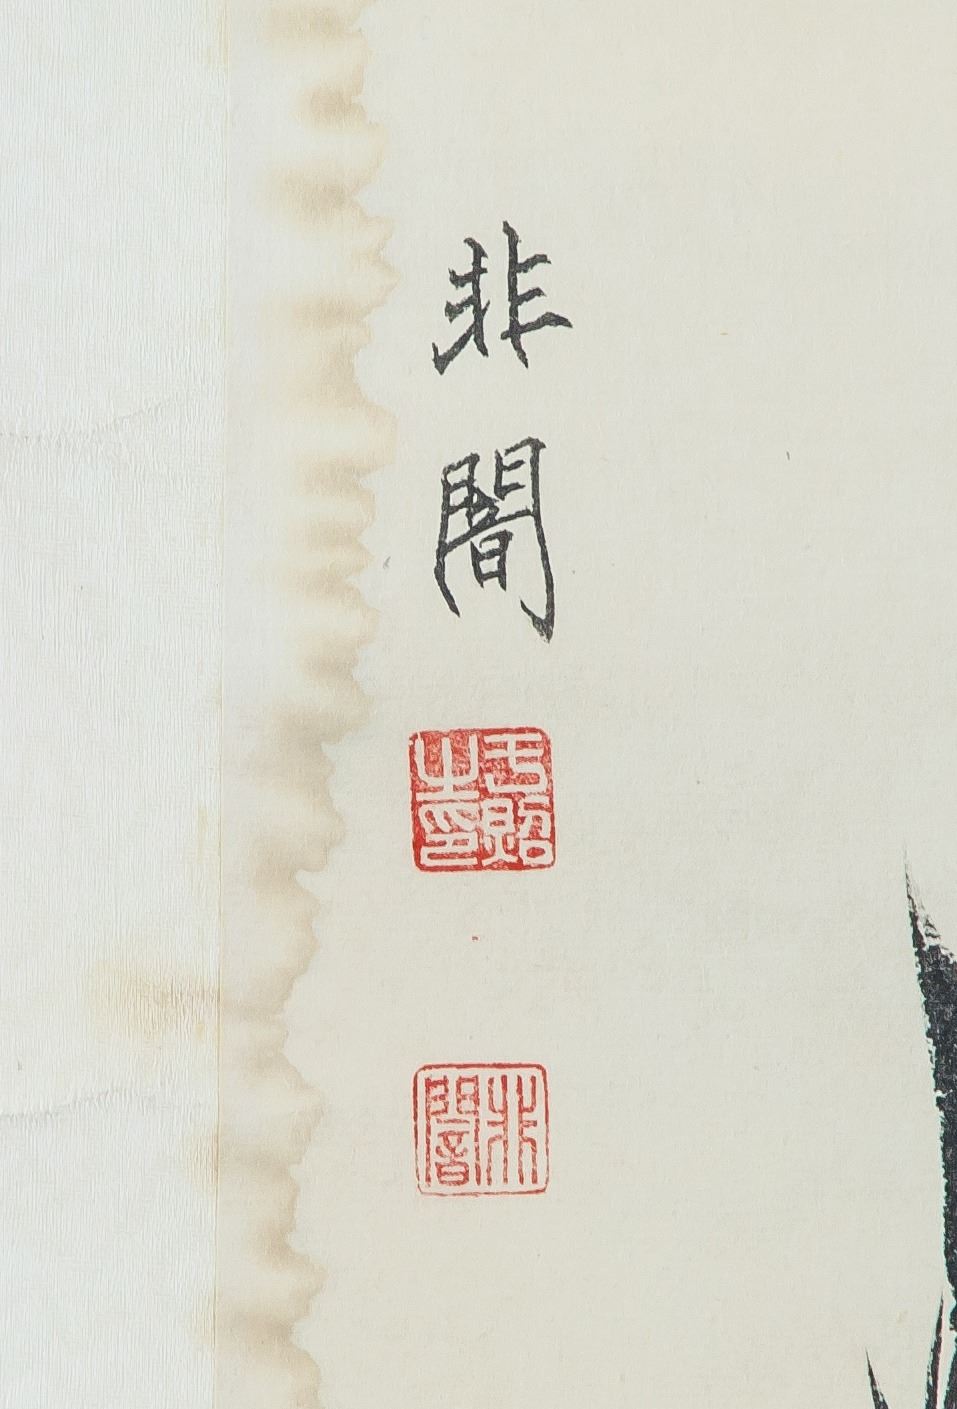 非闇
于照之印
非闇